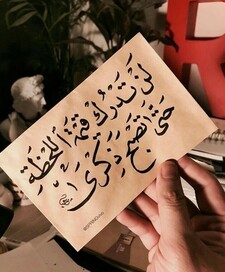 لن تدرك قيمة اللحظة
حتى تصبح ذكرى